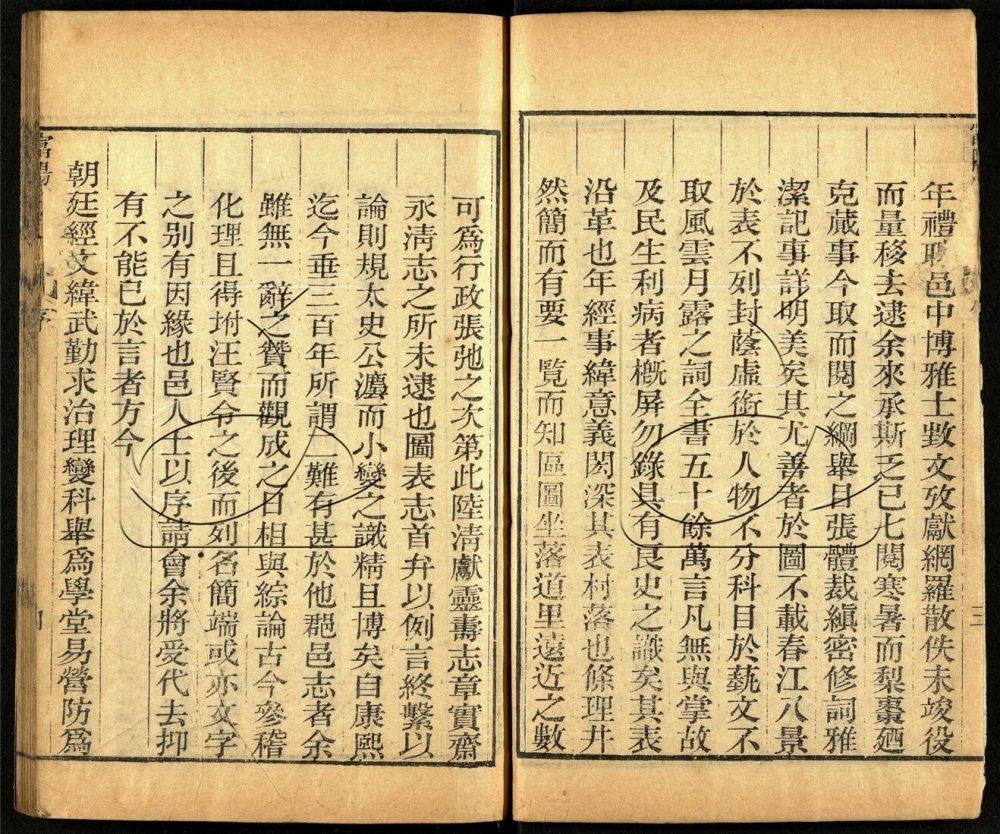 年禮聘邑中博雅士數文攷獻網羅散佚未竣役
而量移去逮余來承斯乏已七閱寒暑而梨棗迺
克蕆事今取而閱之綱舉目張體裁縝密修詞雅
潔記事詳明美矣其尤善者於圖不載春江八景
於表不列封蔭虛銜於人物不分科目於藝文不
取風雲月露之詞全書五十餘萬言凡無與掌故
及民生利病者槪屏勿錄具有良史之識矣其表
沿革也年經事緯意義閎深其表村落也條理井
然簡而有要一覽而知區圖坐落道里遠近之數
可爲行政張弛之次第此陸淸獻靈壽志章實齋
永淸志之所未逮也圖表志首弁以例言終繫以
論則規太史公灋而小變之識精且博矣自康熙
迄今垂三百年所謂二難有甚於他郡邑志者余
雖無一辭之贊而觀成之日相與綜論古今參稽
化理且得坿汪賢令之後而列名簡端或亦文字
之別有因緣也邑人士以序請會余將受代去抑
有不能已於言者方今
朝廷經文緯武勤求治理變科舉爲學堂易營防爲
富陽
序
四
三